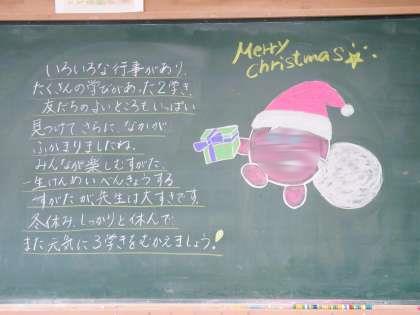 いろいろな行事があり、
たくさんの学びがあった2学き。
友だちのよいところもいっぱい
見つけてさらに、なかが
ふかまりましたね。
みんなが楽しむすがた、
一生けんめいべんきょうする
すがたが先生は大すきです。
冬休み、しっかりと休んで
また元気に3学きをむかえましょう!
Merry
Christmas